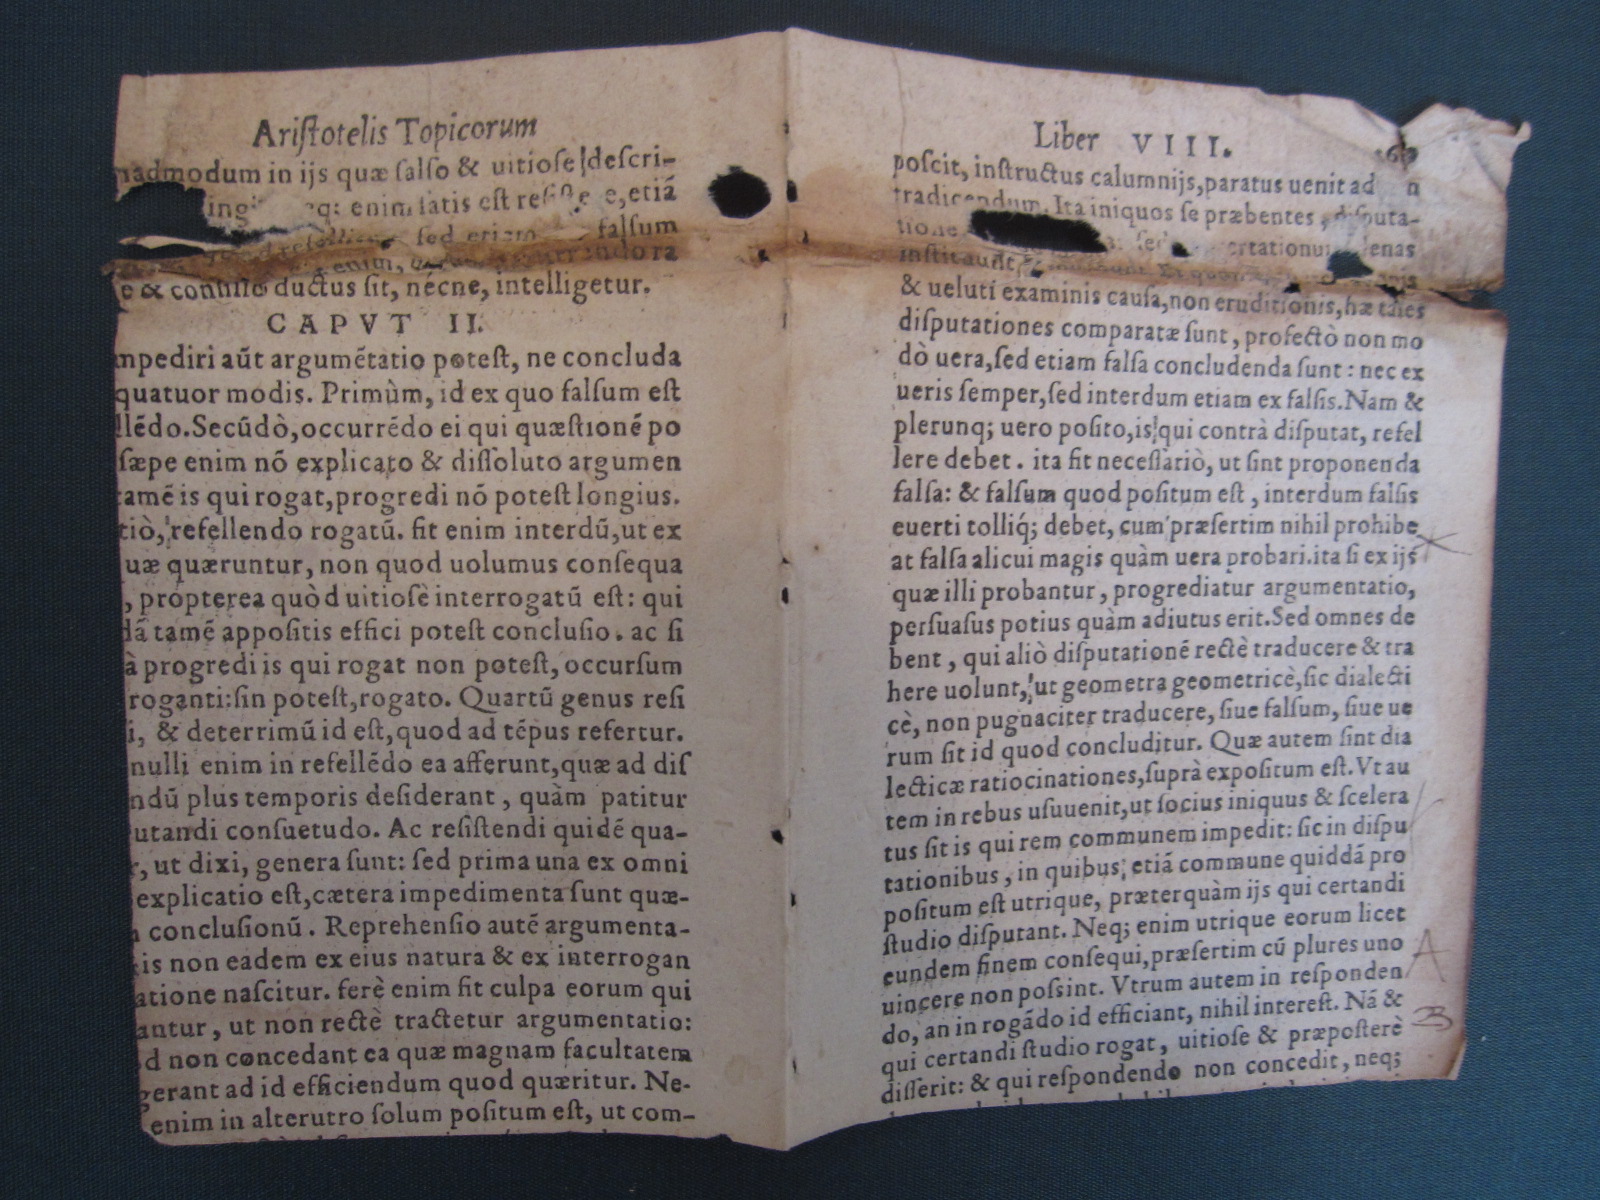 Aristotelis Topicorum
nadmodum in ijs quæ falso & uitiose descri-
enim satis est etiã
sed etiam falsum
enim,
e & confisso ductus sit, nécne, intelligetur.
CAPVT II.
mpediri aũt argumẽtatio potest, ne concluda
quatuor modis. Primùm, id ex quo falsum est
llẽdo. Secũdò, occurrẽdo ei qui quæstionẽ po
sæpe enim nõ explicato & dissoluto argumen
tamẽ is qui rogat, progredi nõ potest longius.
tiò, refellendo rogatũ. fit enim interdũ, ut ex
uæ quæruntur, non quod uolumus consequa
, propterea quòd uitiosè interrogatũ est: qui
dã tamẽ appositis effici potest conclusio. ac si
à progredi is qui rogat non potest, occursum
roganti: sin potest, rogato. Quartũ genus resi
i, & deterrimũ id est, quod ad tẽpus refertur.
nulli enim in refellẽdo ea afferunt, quæ ad dis
ndũ plus temporis desiderant, quàm patitur
utandi consuetudo. Ac resistendi quidẽ qua-
r, ut dixi, genera sunt: sed prima una ex omni
explicatio est, cætera impedimenta sunt quæ-
conclusionũ. Reprehensio autẽ argumenta-
is non eadem ex eius natura & ex interrogan
atione nascitur. ferè enim fit culpa eorum qui
antur, ut non rectè tractetur argumentatio:
d non concedant ea quæ magnam facultatem
gerant ad id efficiendum quod quæritur. Ne-
enim in alterutro solum positum est, ut com-
Liber VIII.
poscit, instructus calumnijs, paratus uenit ad
tradicendum. Ita iniquos se præbentes, disputa-
tione sed
instituunt,
& ueluti examinis causa, non eruditionis, hæ tales
disputationes comparatæ sunt, profectò non mo
dò uera, sed etiam falsa concludenda sunt: nec ex
ueris semper, sed interdum etiam ex falsis. Nam &
plerunq; uero posito, is qui contrà disputat, refel
lere debet. ita fit necessariò, ut sint proponenda
falsa: & falsum quod positum est, interdum falsis
euerti tolliq́; debet, cum præsertim nihil prohibe
at falsa alicui magis quàm uera probari. ita si ex ijs
quæ illi probantur, progrediatur argumentatio,
persuasus potius quàm adiutus erit. Sed omnes de
bent, qui aliò disputationẽ rectè traducere & tra
here uolunt, ut geometra geometricè, sic dialecti
cè, non pugnaciter traducere, siue falsum, siue ue
rum sit id quod concluditur. Quæ autem sint dia
lecticæ ratiocinationes, suprà expositum est. Vt au
tem in rebus usuuenit, ut socius iniquus & scelera
tus sit is qui rem communem impedit: sic in dispu
tationibus, in quibus etiã commune quiddã pro
positum est utrique, præterquàm ijs qui certandi
studio disputant. Neq; enim utrique eorum licet
eundem finem consequi, præsertim cũ plures uno
uincere non possint. Vtrum autem in responden
do, an in rogãdo id efficiant, nihil interest. Nã &
qui certandi studio rogat, uitiose & præposterè
disserit: & qui respondendo non concedit, neq;
A
B